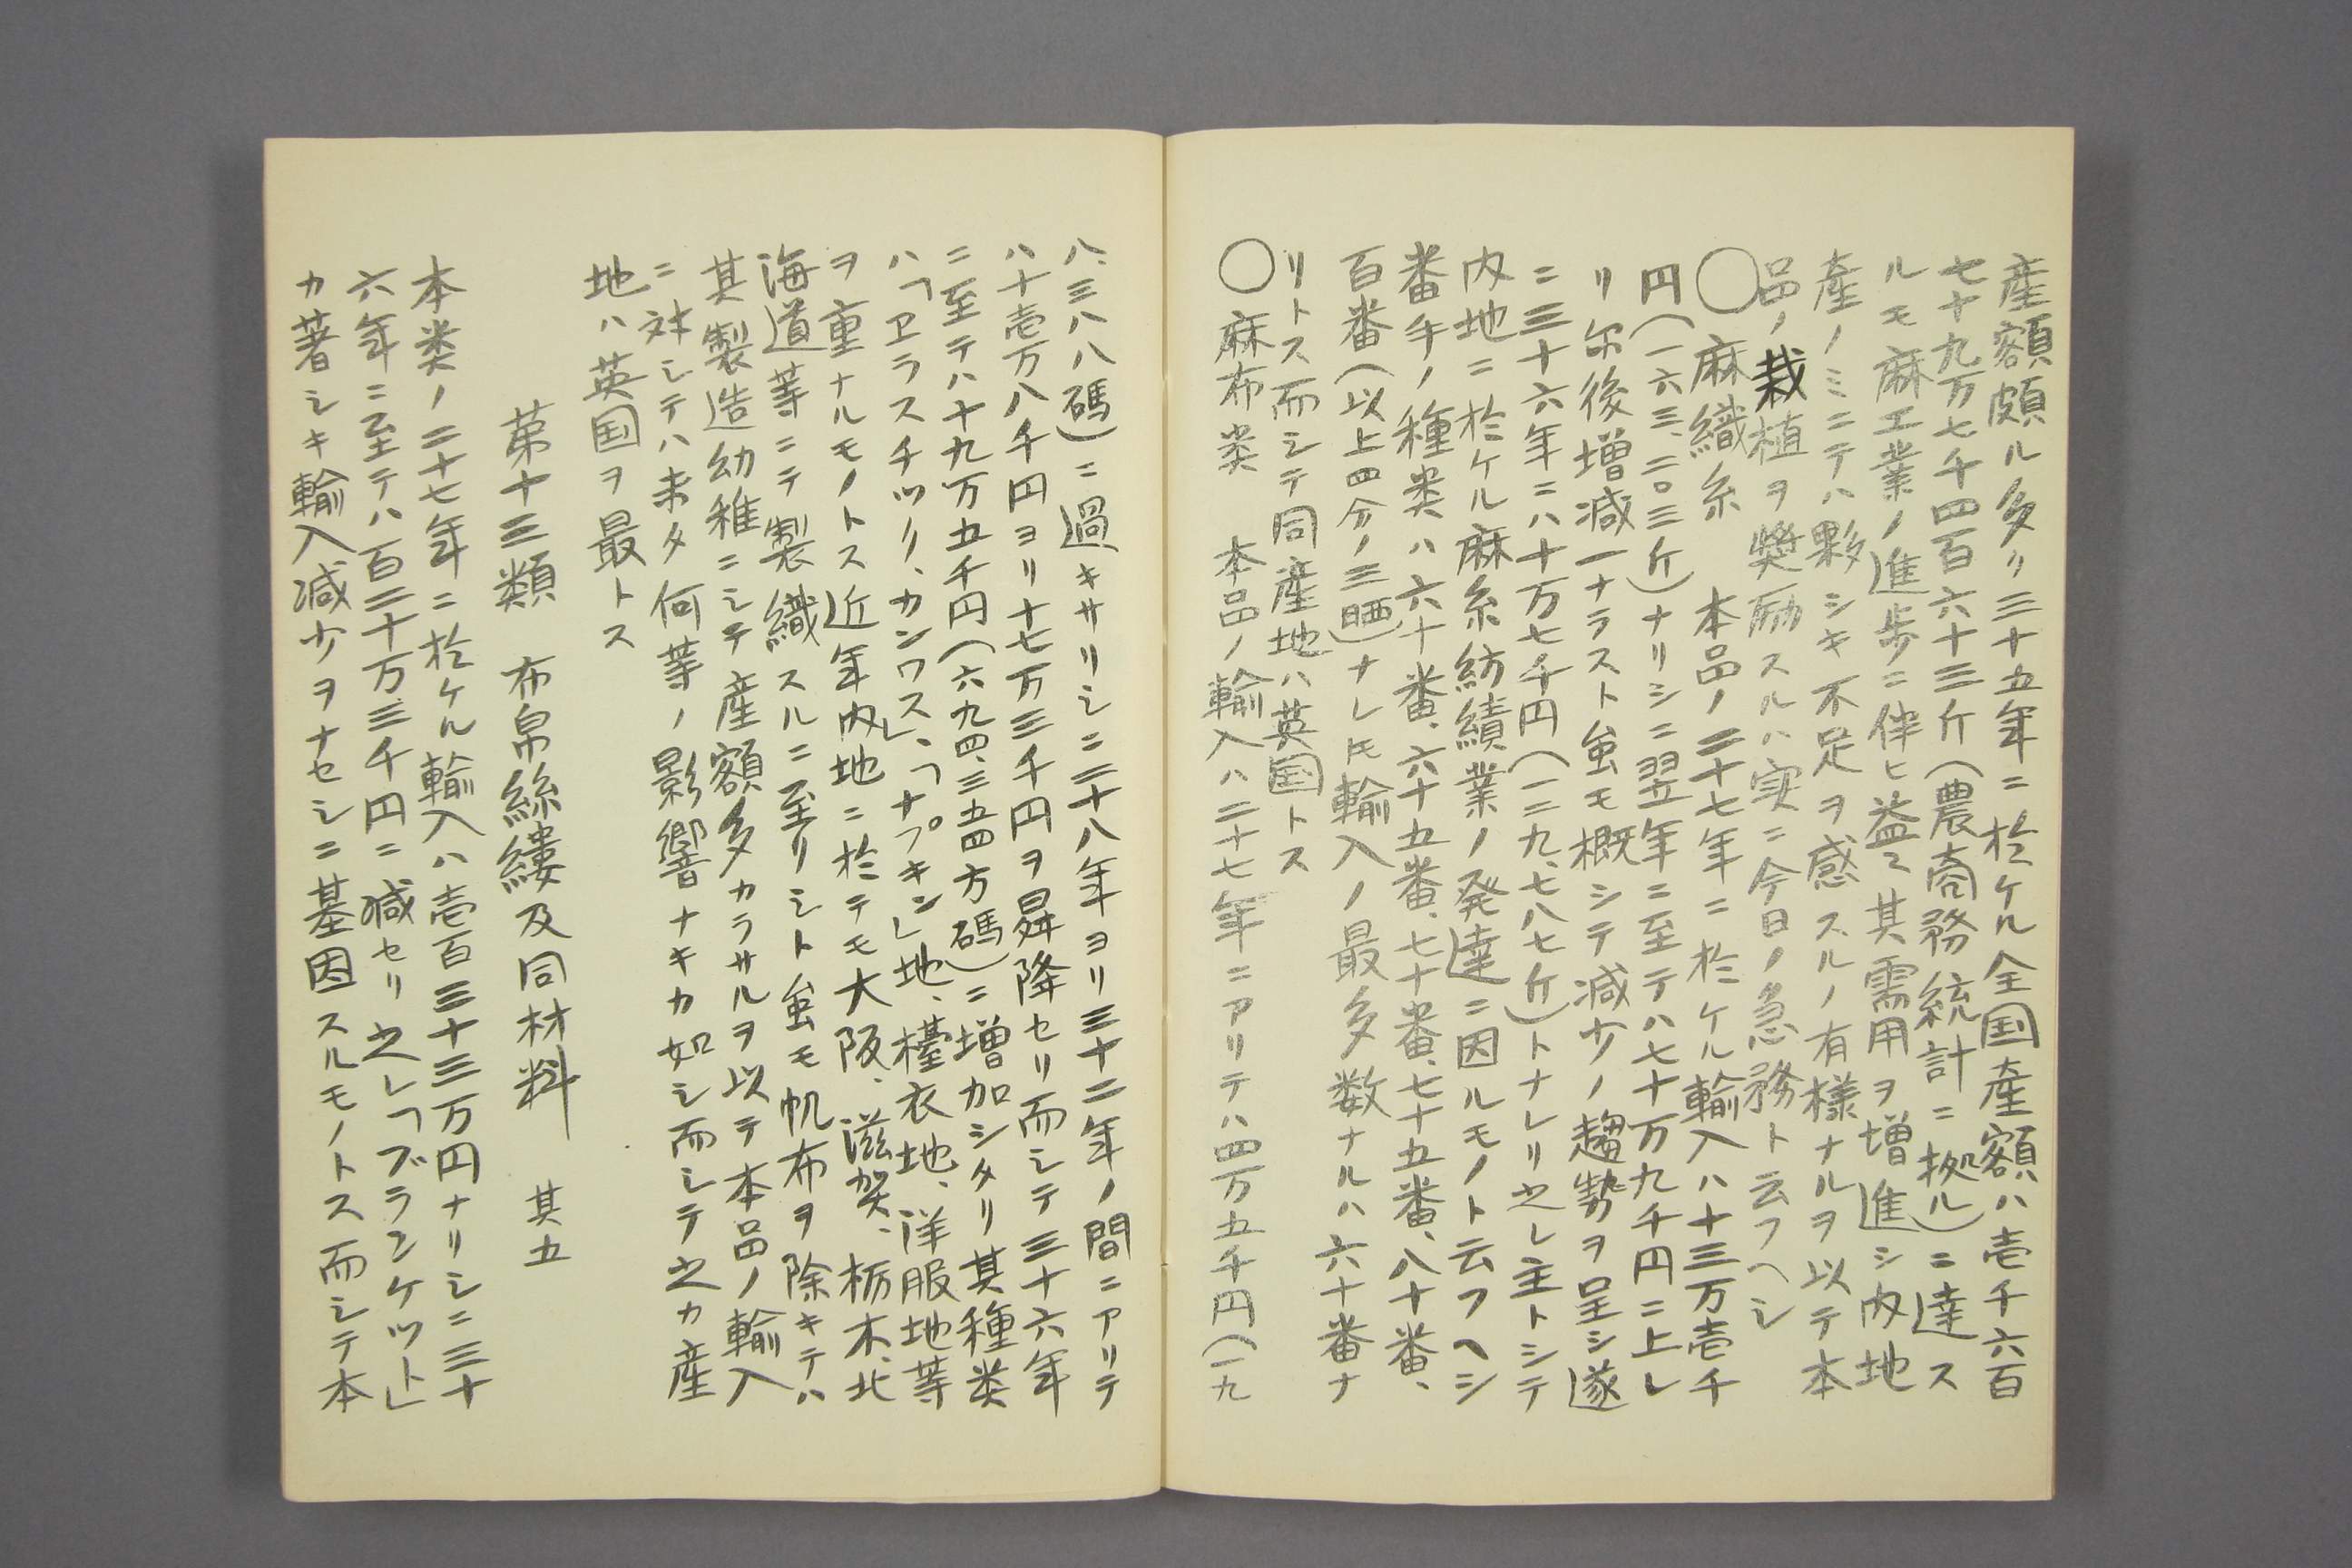 産額頗ル多リ三十五年ニ於ケル全国産額ハ壱千六百
七十九万七千四百六十三斤(農商務統計ニ拠ル)ニ達ス
ルモ麻工業ノ進歩ニ伴ヒ益々其需用ヲ増進シ内地
産ノミニテハ夥シキ不足ヲ感スルノ有様ナルヲ以テ本
品ノ栽植ヲ奨励スルハ実ニ今日ノ急務ト云フヘシ
〇麻織糸 本品ノ二十七年ニ於ケル輸入ハ十三万壱千
円(一六三、二〇三斤)ナリシニ翌年ニ至テハ七十万九千円ニ上レ
リ尓後増減一ナラスト虽モ概シテ減少ノ趨勢ヲ呈シ遂
ニ三十六年ニハ十万七千円(一二九、七八七斤)トナレリ之レ主トシテ
内地ニ於ケル麻糸紡績業ノ発達ニ因ルモノト云フヘシ
番手ノ種类ハ六十番、六十五番、七十番、七十五番、八十番、
百番(以上四分ノ三晒)ナレ𪜈輸入ノ最多数ナルハ六十番ナ
リトス而シテ同産地ハ英国トス
〇麻布类 本品ノ輸入ハ二十七年ニアリテハ四万五千円(一九
八、三八八碼)ニ過キサリシニ二十八年ヨリ三十二年ノ間ニアリテ
ハ十壱万八千円ヨリ十七万三千円ヲ曻降セリ而シテ三十六年
ニ至テハ十九万五千円(六九四、三五四方碼)ニ増加シタリ其種类
ハ「ヱラスチツク、カンワス」、「ナプキン」地、檯衣地、洋服地等
ヲ重ナルモノトス近年内地ニ於テモ大阪、滋贺、栃木、北
海道等ニテ製織スルニ至リシト虽モ帆布ヲ除キテハ
其製造幼稚ニシテ産額多カラサルヲ以テ本品ノ輸入
ニ対シテハ未タ何等ノ影響ナキカ如シ而シテ之カ産
地ハ英国ヲ最トス
第十三類 布帛絲縷及同材料 其五
本类ノ二十七年ニ於ケル輸入ハ壱百三十三万円ナリシニ三十
六年ニ至テハ百二十万三千円ニ減セリ之レ「ブランケツト」
カ著シキ輸入減少ヲナセシニ基因スルモノトス而シテ本